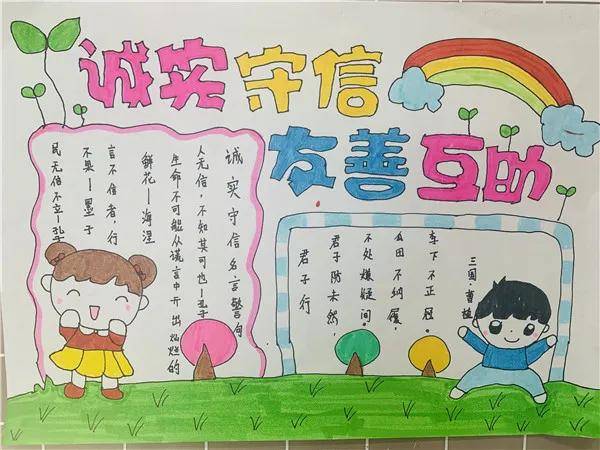 诚实守信
友善互助
诚实守信名言警句
人无信，不知其可也—孔子
生命不可能从谎言中开出灿烂的
鲜花—海涅
言不信者，行
不果—墨子
民无信不立—孔子
君子行
君子防未然，
不处嫌疑间。
瓜田不纳履，
车下不正冠。
三国·曹植